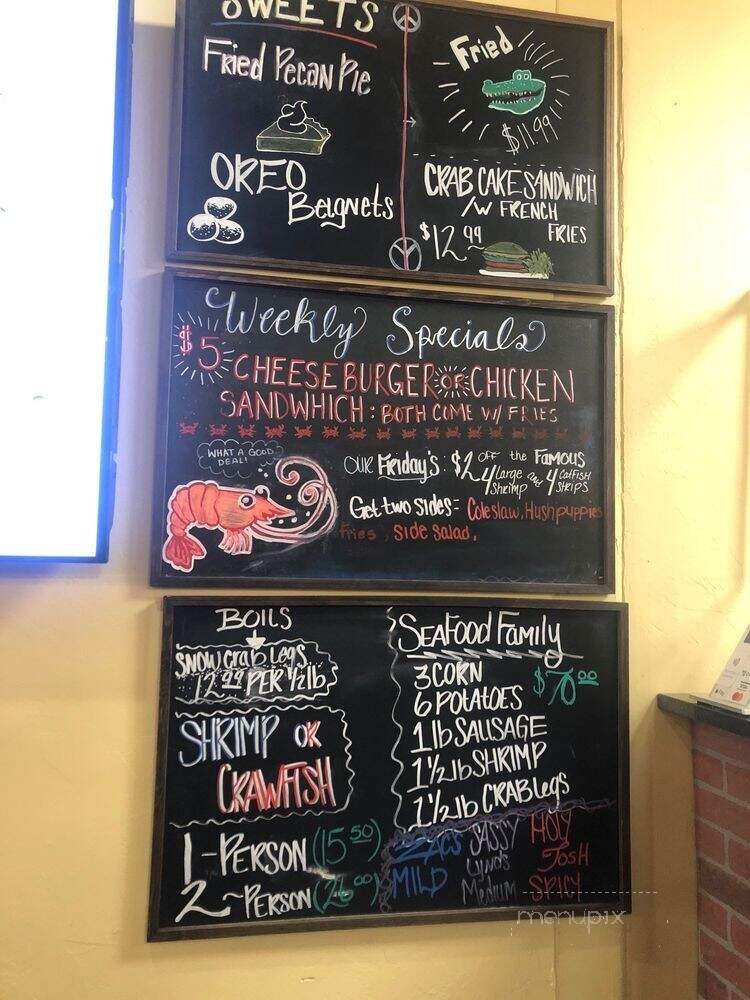 SWEETS
Fried Pecan Pie
OREO
Beignets
Fried
$11.99
CRAB CAKE SANDWICH
/W FRENCH
FRIES
$12.99
Weekly Specials
$5 CHEESE BURGER OR CHICKEN
SANDWHICH: BOTH COME W/ FRIES
WHAT A GOOD
DEAL!
OUR Friday's: $2 OFF the FAMOUS
4 Large Shrimp and 4 CATFISH STRIPS
Get two sides= Coleslaw, Hushpuppies
Fries, side salad,
BOILS
SNOW crab Legs
12.99 PER 1/2 lb
SHRIMP OR
CRAWFISH
1-PERSON (15.50)
2-PERSON (26.00)
SEAFOOD FAMILY
3 CORN
$70.00
6 POTATOES
1 lb SAUSAGE
1 1/2 lb SHRIMP
1 1/2 lb CRAB legs
ZACS
MILD
SASSY
Lynds
Medium
HOLY
JOSH
SPICY
menupix